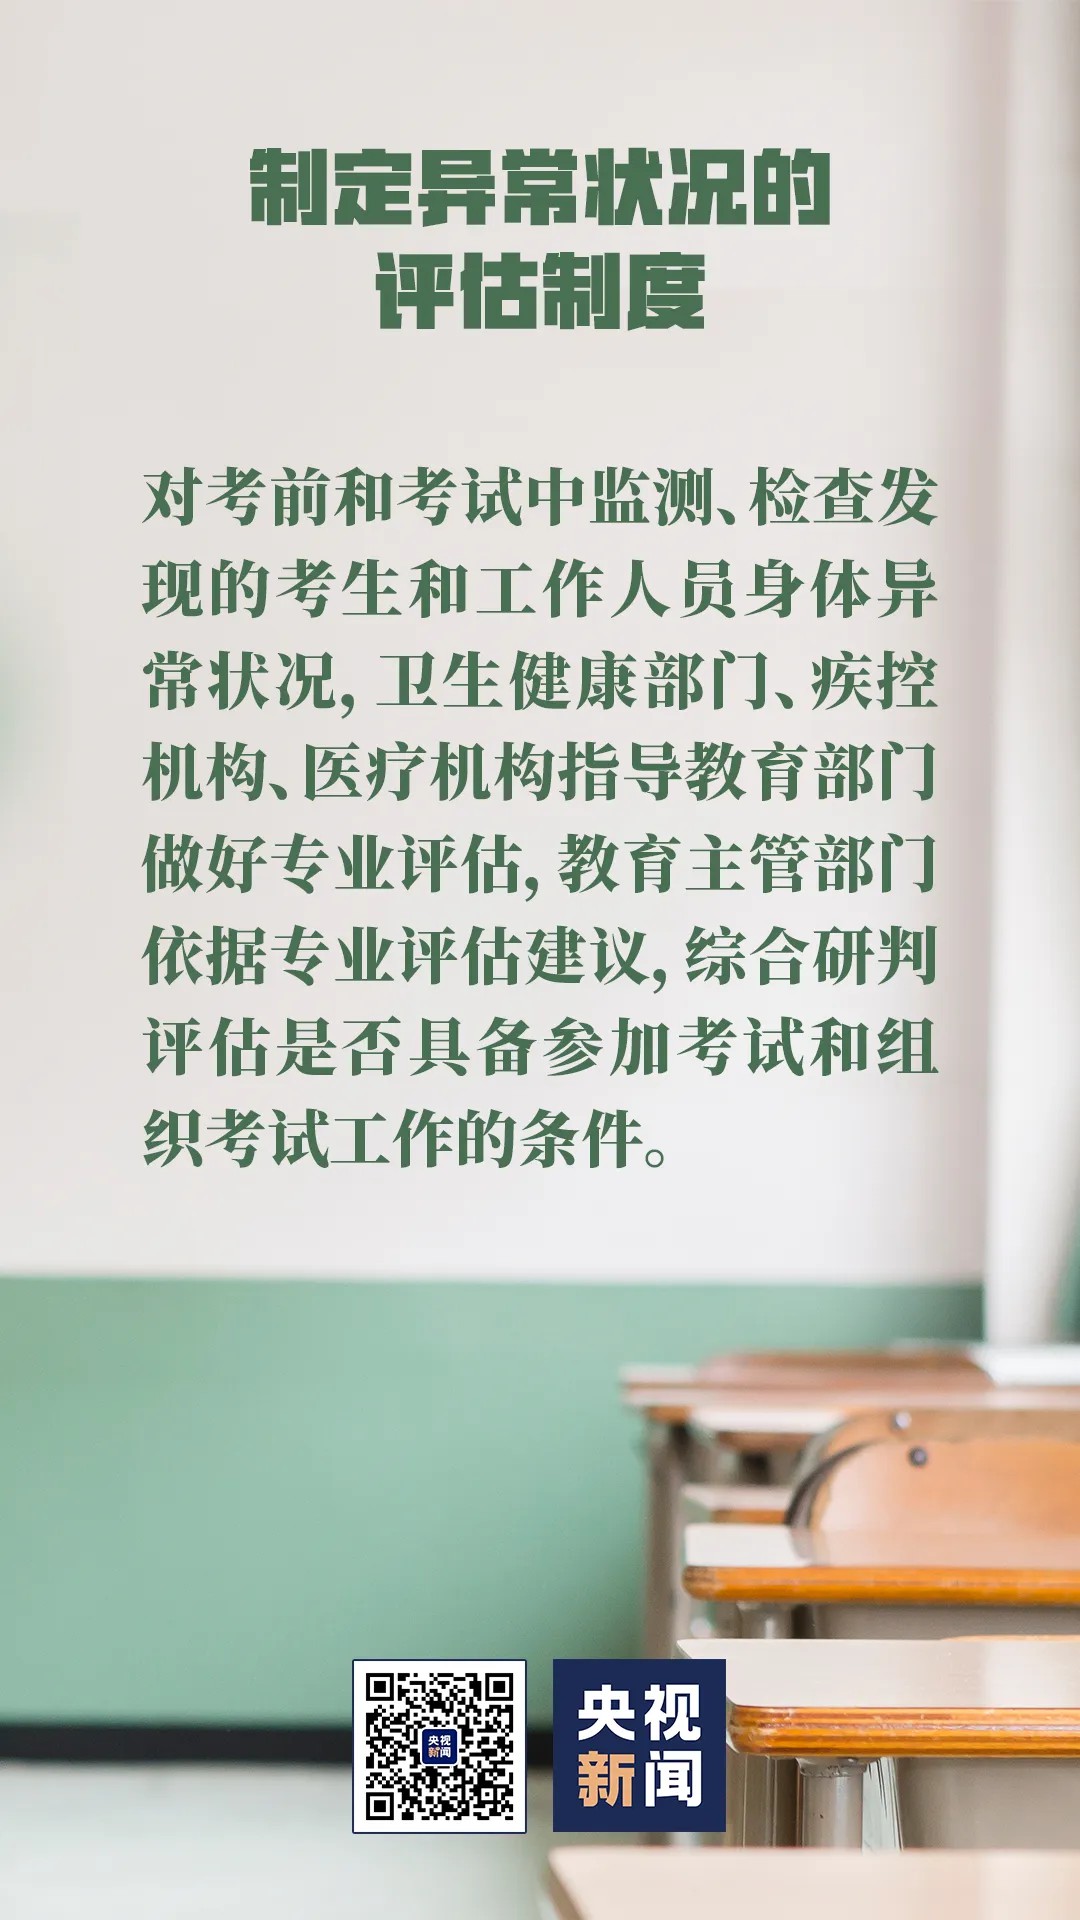 制定异常状况的
评估制度
对考前和考试中监测、检查发
现的考生和工作人员身体异
常状况，卫生健康部门、疾控
机构、医疗机构指导教育部门
做好专业评估，教育主管部门
依据专业评估建议，综合研判
评估是否具备参加考试和组
织考试工作的条件。
央视
新闻
央视
新闻